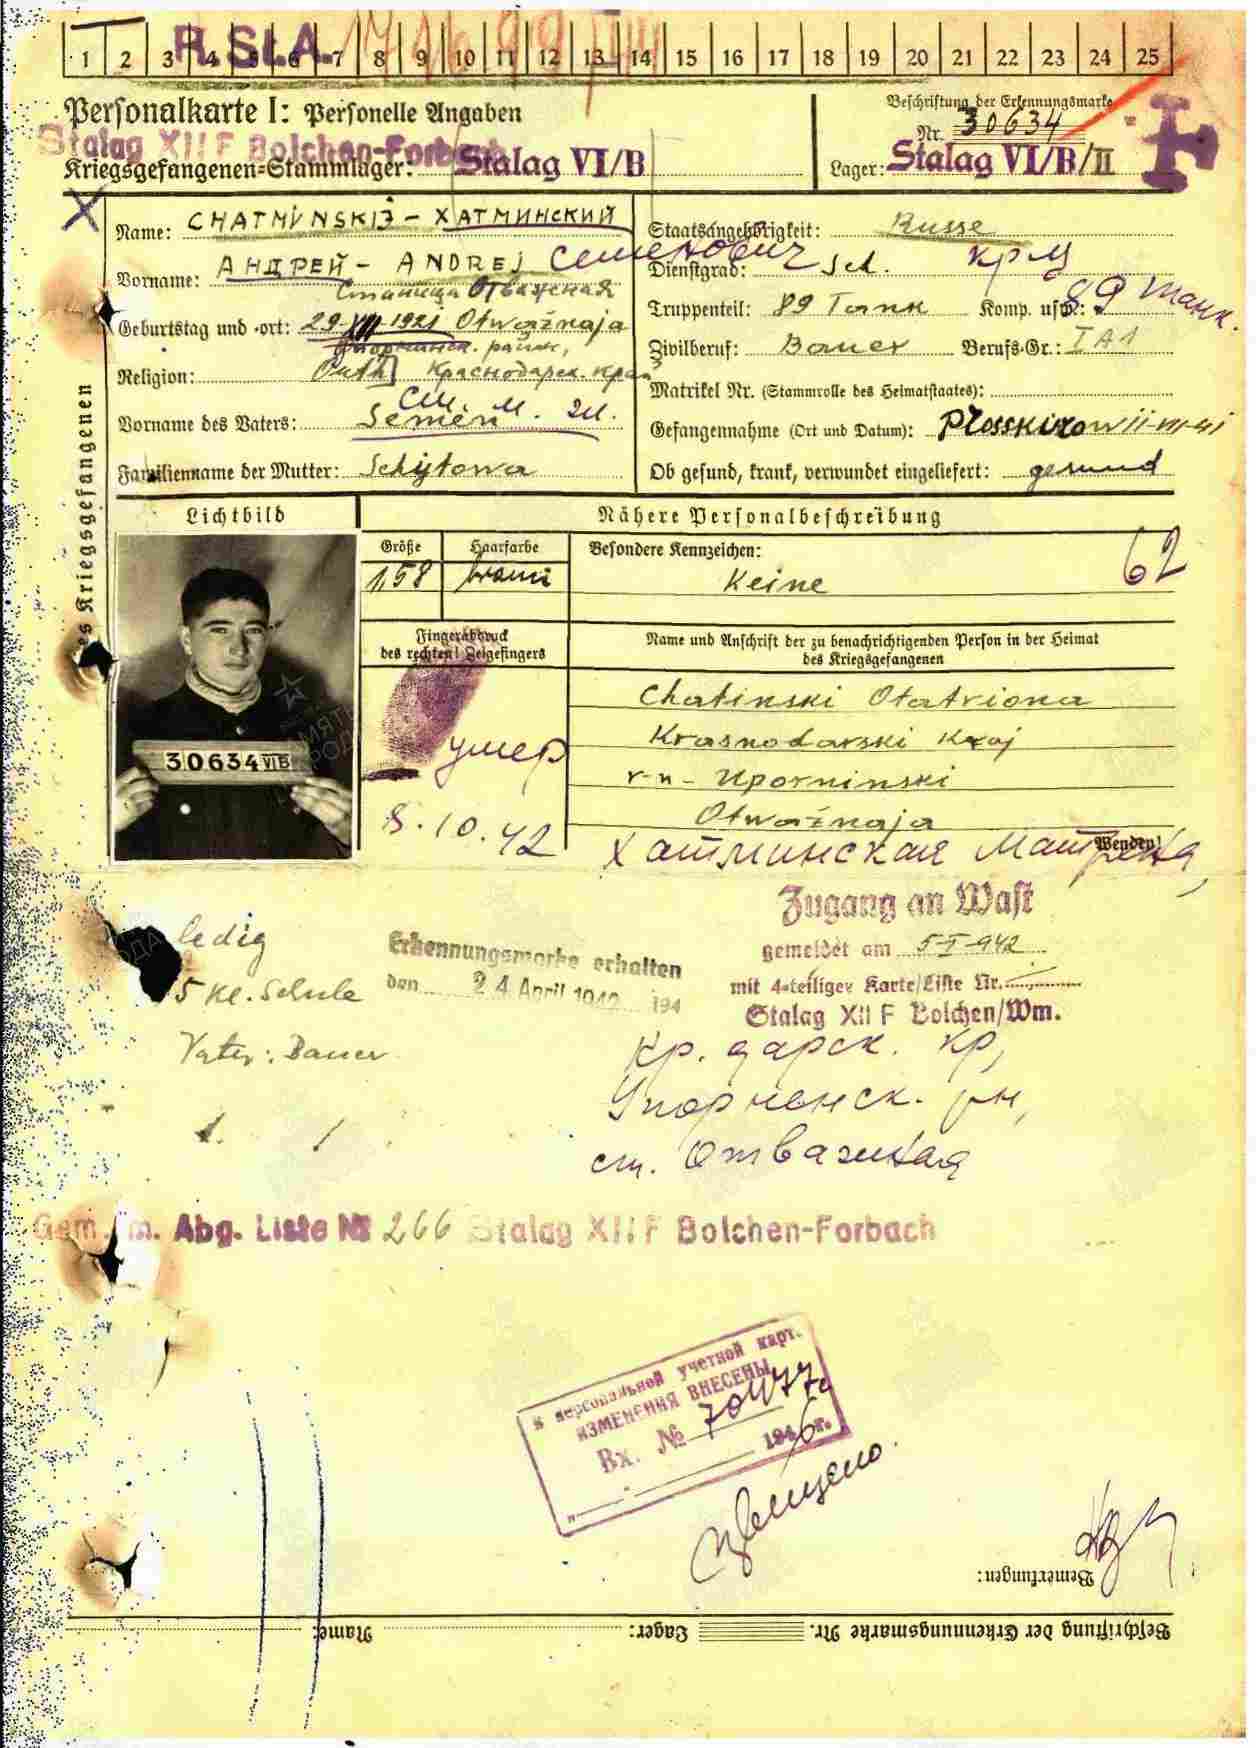 1 2 3 4 5 6 7 8 9 10 11 12 13 14 15 16 17 18 19 20 21 22 23 24 25
R.St.A.
Personalkarte I: Personelle Angaben
Beschriftung der Erkennungsmarke
Nr. 30634
Stalag XII F Bolchen-Forbach
Kriegsgefangenen-Stammlager: Stalag VI/B
Lager: Stalag VI/B/II
des Kriegsgefangenen
Name: CHATMINSKIJ - ХАТМИНСКИЙ
Vorname: АНДРЕЙ - ANDREJ Семенович
Станица Отважная
Geburtstag und -ort: 29-XII-1921 Otwažnaja
район,
Religion: Orth Краснодарск. край
Vorname des Vaters: Semën
Familienname der Mutter: Schytowa
Staatsangehörigkeit: Russe
Dienstgrad: Sol. кр-ц
Truppenteil: 89 Tank Komp. usw.: 89 танк.
Zivilberuf: Bauer Berufs-Gr.: I A1
Matrikel Nr. (Stammrolle des Heimatstaates):
Gefangennahme (Ort und Datum): Ploskirow
Ob gesund, krank, verwundet eingeliefert: gesund
Lichtbild
Nähere Personalbeschreibung
Größe
1,58
Haarfarbe
braun
Besondere Kennzeichen:
Keine
62
Fingerabdruck
des rechten! Zeigefingers
умер
8.10.42
Name und Anschrift der zu benachrichtigenden Person in der Heimat
des Kriegsgefangenen
Chatinski Otatriona
Krasnodarski Kraj
r-n - Uporninski
Otwažnaja
Wenden!
Хатминская Матрена,
30634 VI B
ledig
5 Kl. Schule
Vater: Bauer
Erkennungsmarke erhalten
den 24. April 1942 194
Zugang an Wast
gemeldet am 5-I-942
mit 4-teiliger Karte/Liste Nr.
Stalag XII F Bolchen/Wm.
Кр. дарск. кр,
Упорненск. рн,
ст. Отважная
Gem. m. Abg. Liste № 266 Stalag XII F Bolchen-Forbach
К персональной учетной карт.
ИЗМЕНЕНИЯ ВНЕСЕНЫ
Вх. № 70477с
1946 г.
Bemerkungen:
Beschriftung der Erkennungsmarke Nr. Lager: Name: